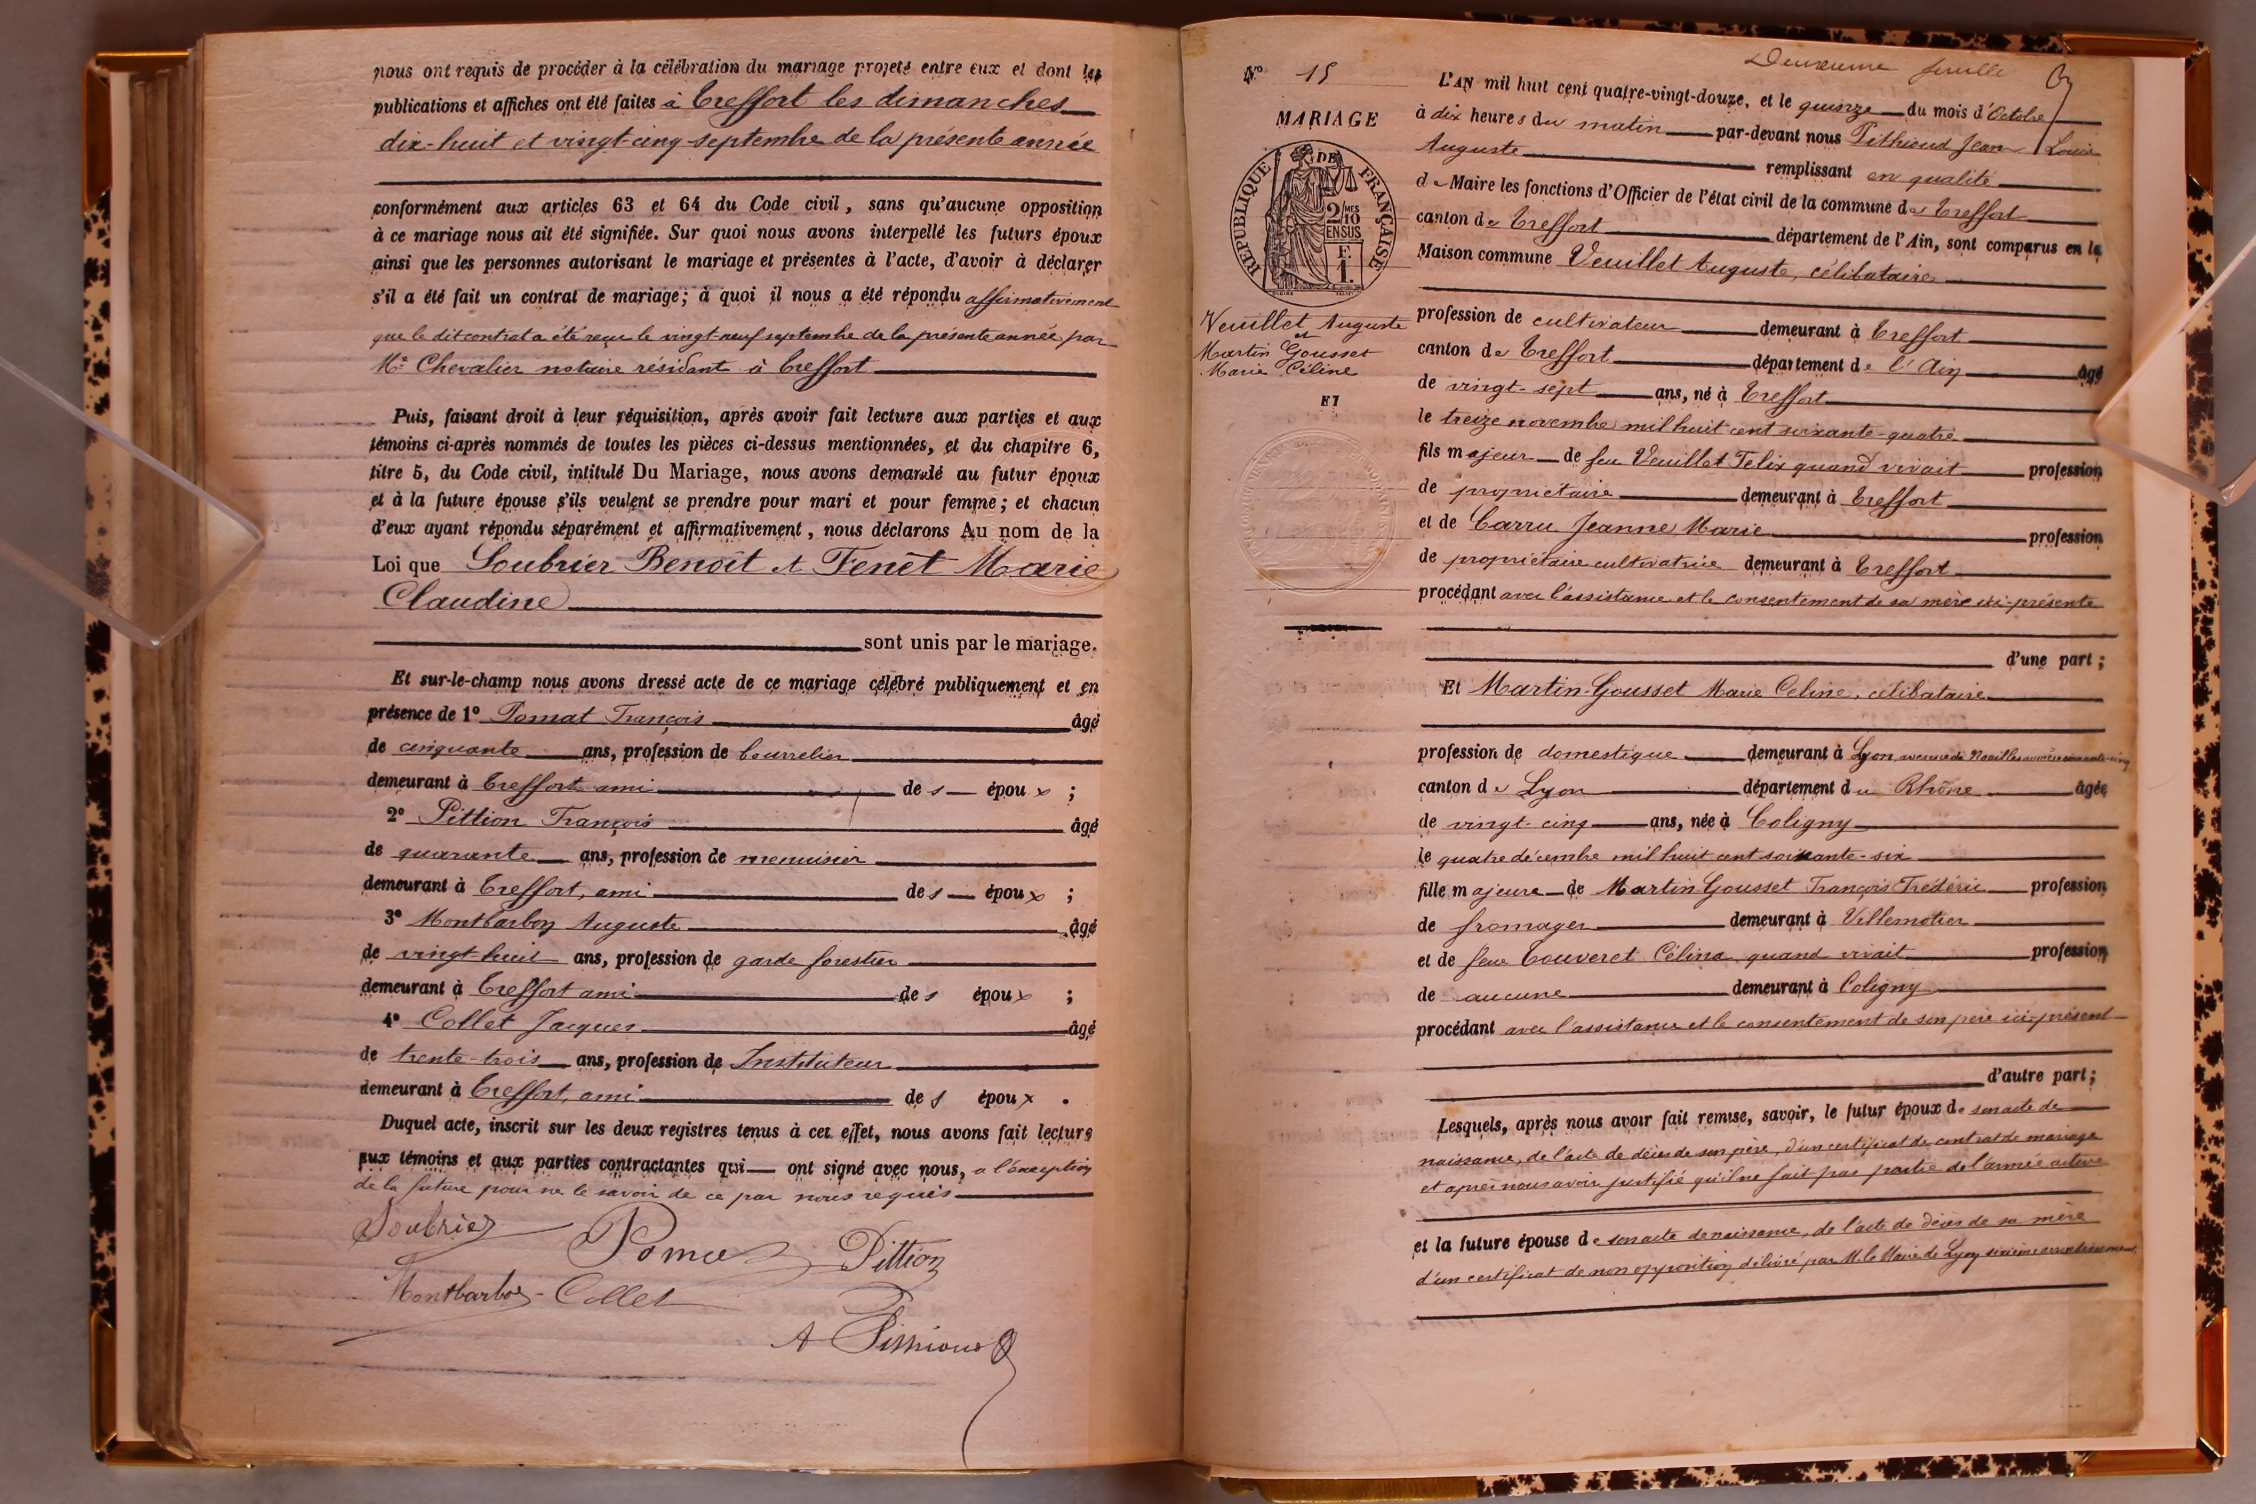 nous ont requis de procéder à la célébration du mariage projeté entre eux et dont les
publications et affiches ont été faites à Treffort les dimanches
dix-huit et vingt-cinq septembre de la présente année
conformément aux articles 63 et 64 du Code civil, sans qu'aucune opposition
à ce mariage nous ait été signifiée. Sur quoi nous avons interpellé les futurs époux
ainsi que les personnes autorisant le mariage et présentes à l'acte, d'avoir à déclarer
s'il a été fait un contrat de mariage; à quoi il nous a été répondu affirmativement
que le dit contrat a été reçu le vingt-neuf septembre de la présente année par
Me Chevalier notaire résidant à Treffort
Puis, faisant droit à leur réquisition, après avoir fait lecture aux parties et aux
témoins ci-après nommés de toutes les pièces ci-dessus mentionnées, et du chapitre 6,
titre 5, du Code civil, intitulé Du Mariage, nous avons demandé au futur époux
et à la future épouse s'ils veulent se prendre pour mari et pour femme; et chacun
d'eux ayant répondu séparément et affirmativement, nous déclarons Au nom de la
Loi que Soubrier Benoît et Fenêt Marie
Claudine
sont unis par le mariage.
Et sur-le-champ nous avons dressé acte de ce mariage célébré publiquement et en
présence de 1° Pomat François âgé
de cinquante ans, profession de bourrelier
demeurant à Treffort ami de s époux ;
2° Pittion François âgé
de quarante ans, profession de menuisier
demeurant à Treffort, ami de s époux ;
3° Montbarbon Auguste âgé
de vingt-huit ans, profession de garde forestier
demeurant à Treffort ami de s époux ;
4° Collet Jacques âgé
de trente-trois ans, profession de Instituteur
demeurant à Treffort, ami de s époux .
Duquel acte, inscrit sur les deux registres tenus à cet effet, nous avons fait lecture
aux témoins et aux parties contractantes qui ont signé avec nous, a l'exception
de la future pour ne le savoir de ce par nous requis
Soubrier Pomat Pittion
Montbarbon Collet
A Pithioud
Deuxième feuille
N° 15
MARIAGE
REPUBLIQUE FRANÇAISE
DE
2/10 MES
EN SUS
F.
1.
Veuillet Auguste
et
Martin Gousset
Marie Céline
ET
L'AN mil huit cent quatre-vingt-douze, et le quinze du mois d'Octobre
à dix heures du matin par-devant nous Pithioud Jean Louis
Auguste remplissant en qualité
de Maire les fonctions d'Officier de l'état civil de la commune de Treffort
canton de Treffort département de l'Ain, sont comparus en la
Maison commune Veuillet Auguste, célibataire
profession de cultivateur demeurant à Treffort
canton de Treffort département de l'Ain âgé
de vingt-sept ans, né à Treffort
le treize novembre mil huit cent soixante-quatre
fils majeur de feu Veuillet Félix quand vivait profession
de propriétaire demeurant à Treffort
et de Carru Jeanne Marie profession
de propriétaire cultivatrice demeurant à Treffort
procédant avec l'assistance et le consentement de sa mère ici-présente
d'une part ;
Et Martin-Gousset Marie Céline, célibataire
profession de domestique demeurant à Lyon avenue de Noailles numéro cinquante-cinq
canton de Lyon département du Rhône âgée
de vingt-cinq ans, née à Coligny
le quatre décembre mil huit cent soixante-six
fille majeure de Martin-Gousset François Frédéric profession
de fromager demeurant à Villemotier
et de feue Couveret Célina quand vivait profession
de aucune demeurant à Coligny
procédant avec l'assistance et le consentement de son père ici-présent
d'autre part ;
Lesquels, après nous avoir fait remise, savoir, le futur époux de son acte de
naissance, de l'acte de décès de son père, d'un certificat de contrat de mariage
et après nous avoir justifié qu'il ne fait pas partie de l'armée active
et la future épouse de son acte de naissance, de l'acte de décès de sa mère
d'un certificat de non opposition délivré par M. le Maire de Lyon sixième arrondissement